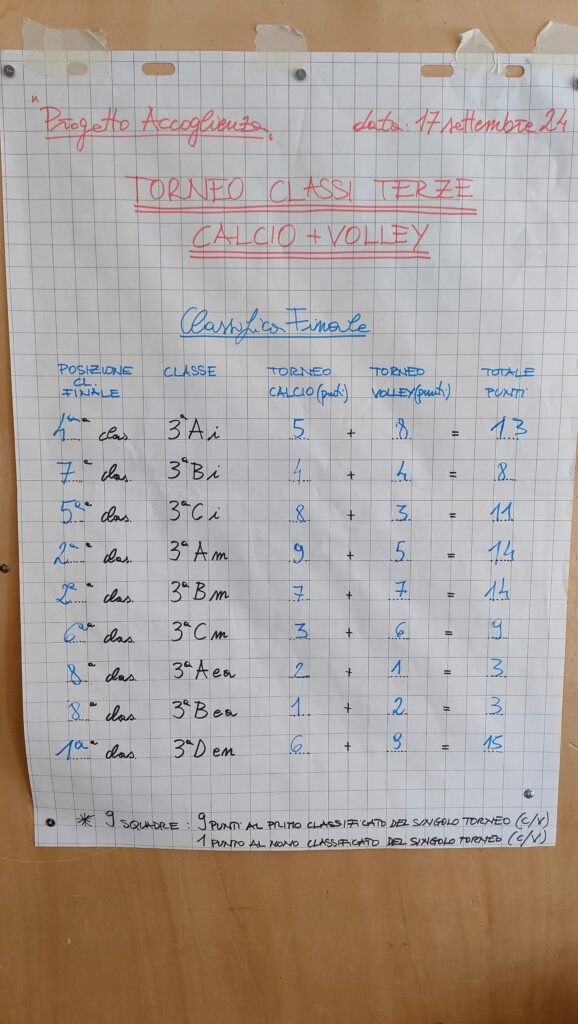 "Progetto Accoglienza" data: 17 settembre 24
TORNEO CLASSI TERZE
CALCIO + VOLLEY
Classifica Finale
POSIZIONE CL. FINALE CLASSE TORNEO CALCIO (punti) TORNEO VOLLEY (punti) TOTALE PUNTI
4ª clas. 3ªAi 5 + 8 = 13
7ª clas. 3ªBi 4 + 4 = 8
5ª clas. 3ªCi 8 + 3 = 11
2ª clas. 3ªAm 9 + 5 = 14
2ª clas. 3ªBm 7 + 7 = 14
6ª clas. 3ªCm 3 + 6 = 9
8ª clas. 3ªAea 2 + 1 = 3
8ª clas. 3ªBea 1 + 2 = 3
1ª clas. 3ªDem 6 + 9 = 15
* 9 SQUADRE : 9 PUNTI AL PRIMO CLASSIFICATO DEL SINGOLO TORNEO (C/V)
1 PUNTO AL NONO CLASSIFICATO DEL SINGOLO TORNEO (C/V)